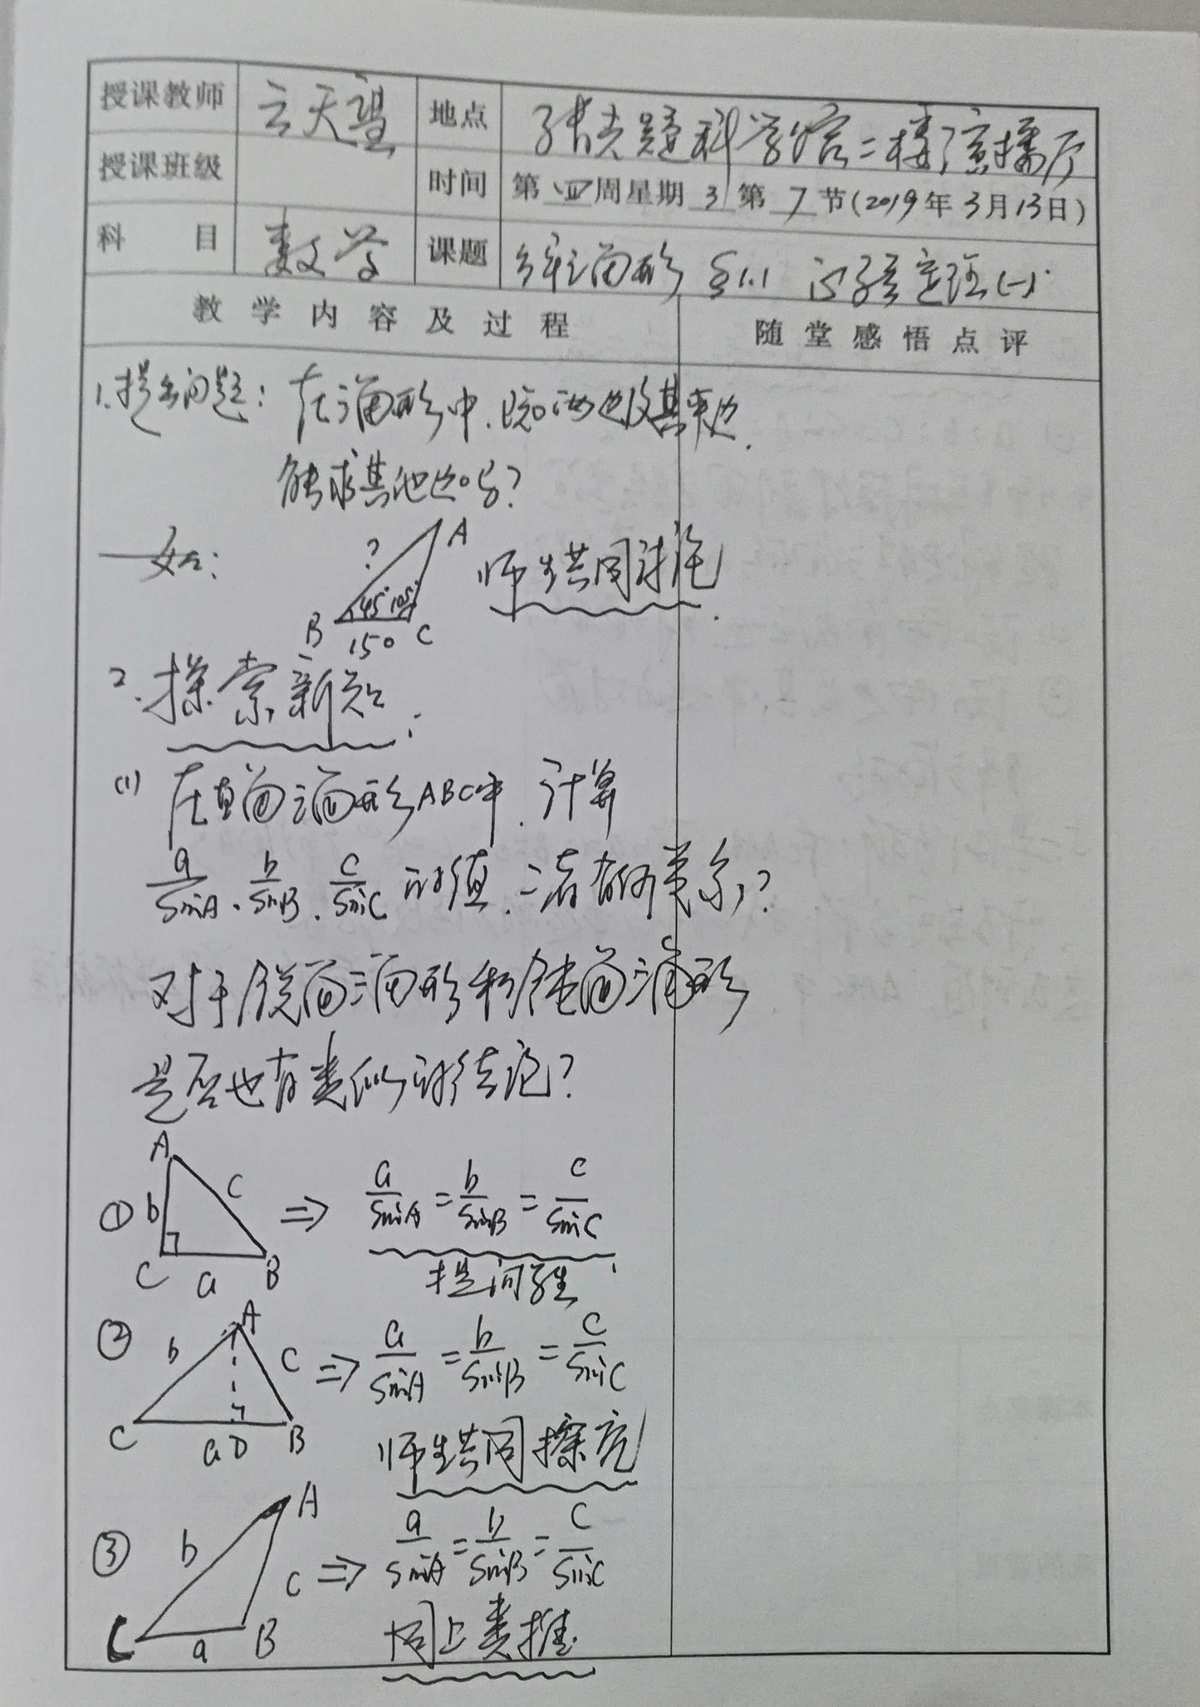 授课教师 云天望 地点 科学馆二楼演播厅
授课班级 时间 第四周星期3第7节(2019年3月13日)
科目 数学 课题 解三角形 §1.1 正弦定理(一)
教学内容及过程 随堂感悟点评
1.提出问题:在三角形中,已知两角及其夹边,
能求其他边吗?
如: ? A 师生共同讨论.
45° 105°
B 150 C
2.探索新知:
(1) 在直角三角形ABC中,计算
a/sinA、b/sinB、c/sinC 的值,三者有何关系?
对于锐角三角形和钝角三角形
是否也有类似的结论?
① A b c C a B ⇒ a/sinA = b/sinB = c/sinC
提问学生
② A b c C a D B ⇒ a/sinA = b/sinB = c/sinC
师生共同探究
③ A b c C a B ⇒ a/sinA = b/sinB = c/sinC
同上类推